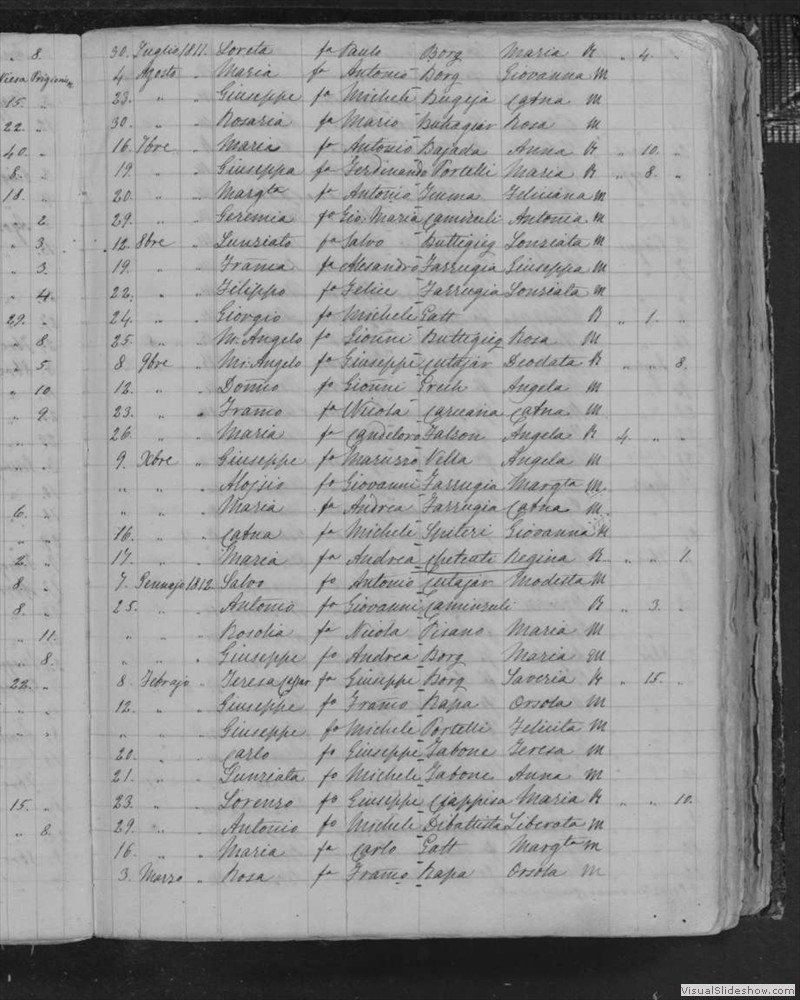 8. 30. Luglio 1811. Loreta fa Paulo Borg Maria R „ 4. „
Nicsa Prigionier 4 Agosto „ Maria fa Antonio Borg Giovanna M
15. „ 23. „ „ Giuseppe fo Micheli Bugeja Catna M
22. „ 30. „ „ Rosaria fa Mario Buttagiar Rosa M
40. „ 16. 7bre „ Maria fa Antonio Bajada Anna R „ 10. „
8. „ 19. „ „ Giuseppa fa Ferdinando Portelli Maria R „ 8. „
18. „ 20. „ „ Margta fa Antonio Feliciana M
„ 2. 29. „ „ Geremia fo Gio: Maria Camenzuli Antonia M
„ 3. 12. 8bre „ Nunziato fo Salvo Buttigieg Nonziata M
„ 3. 19. „ „ Franca fa Alesandro Farrugia Giuseppa M
„ 4. 22. „ „ Filippo fo Felice Farrugia Nonziata M
29. „ 24. „ „ Giorgio fo Micheli Gatt R „ 1. „
„ 8. 25. „ „ M: Angelo fo Gionni Buttigieg Rosa M
„ 5. 8. 9bre „ M: Angelo fo Giuseppi Cutajar Deodata R „ „ 8.
„ 10. 12. „ „ Domco fo Gionni Grech Angela M
„ 9. 23. „ „ Franco fo Nicola Caruana Catna M
„ „ 26. „ „ Maria fa Candeloro Falson Angela R 4. „ „
„ „ 9. Xbre „ Giuseppe fo Maruzzo Vella Angela M
„ „ „ „ Alojsio fo Giovanni Farrugia Margta M.
6. „ „ „ „ Maria fa Andrea Farrugia Catna M.
„ „ 16. „ „ Catna fa Micheli Spiteri Giovanna M
2. „ 17. „ „ Maria fa Andrea Chetcuti Regina R. „ „ 1.
8. „ 7. Gennajo 1812. Salvo fo Antonio Cutajar Modesta M
8. „ 25. „ „ Antonio fo Giovanni Camenzuli R „ 3. „
„ 11. „ „ „ Rosolia fa Nicola Pisano Maria M
„ 8. „ „ „ Giuseppe fo Andrea Borg Maria M
22. „ 8. Febrajo „ Teresa fa Giuseppe Borg Saveria R „ 15. „
„ „ 12. „ „ Giuseppe fo Franco Rapa Orsola M
„ „ „ „ „ Giuseppe fo Micheli Portelli Felicita M
20. „ „ Carlo fo Giuseppe Tabone Teresa M
21. „ „ Nunziata fa Micheli Tabone Anna M
15. „ 23. „ „ Lorenzo fo Giuseppi Ciappisa Maria R „ „ 10.
„ 8. 29. „ „ Antonio fo Micheli Dibattista Liberata M
16. „ „ Maria fa Carlo Gatt Margta M
3. Marzo „ Rosa fa Franco Rapa Orsola M
VisualSlideshow.com